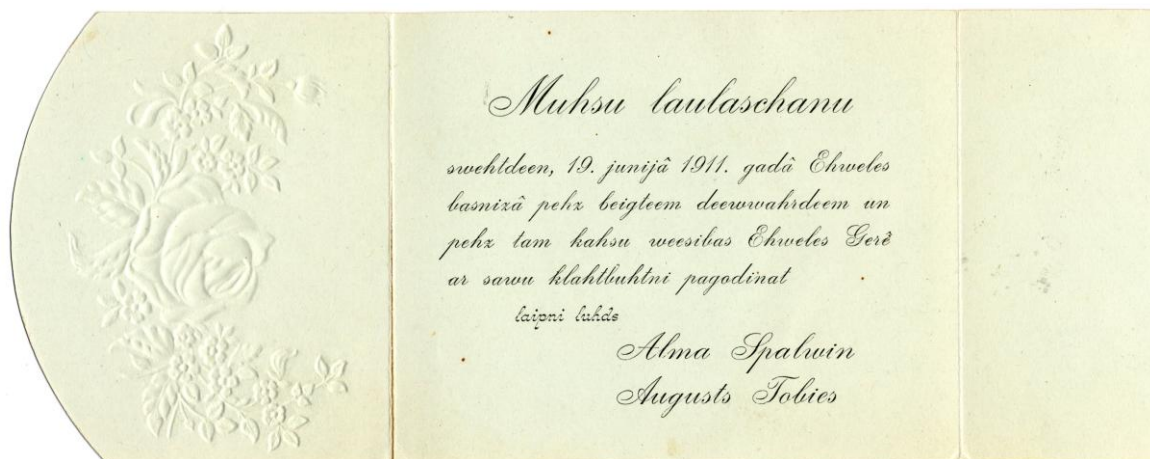 Muhsu laulaschanu
swehtdeen, 19. junijâ 1911. gadâ Ehweles
basnizâ pehz beigteem deewwahrdeem un
pehz tam kahsu weesibas Ehweles Gerê
ar sawu klahtbuhtni pagodinat
laipni luhds
Alma Spalwin
Augusts Tobies